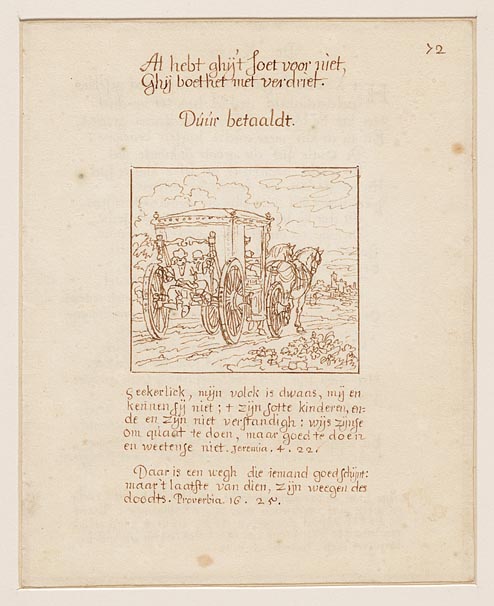 72
Al hebt ghij't soet voor niet,
Ghij boethet met verdriet.
Dúúr betaaldt.
Seekerlick, mijn volck is dwaas, mij en
kennen sij niet; t zijn sotte kinderen, en-
de en zijn niet verstandigh: wijs zijnse
om quaat te doen, maar goed te doen
en weetense niet. Jeremia. 4. 22.
Daar is een wegh die iemand goed schijnt:
maar't laatste van dien, zijn weegen des
doodts. Proverbia 16. 25.